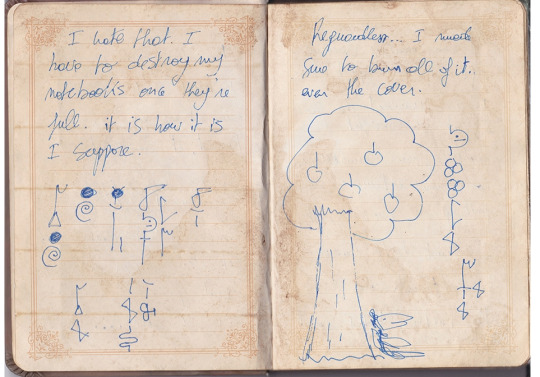 I hate that. I
have to destroy my
notebooks once they're
full. it is how it is
I suppose.
Reguardless... I made
sure to burn all of it..
even the cover.